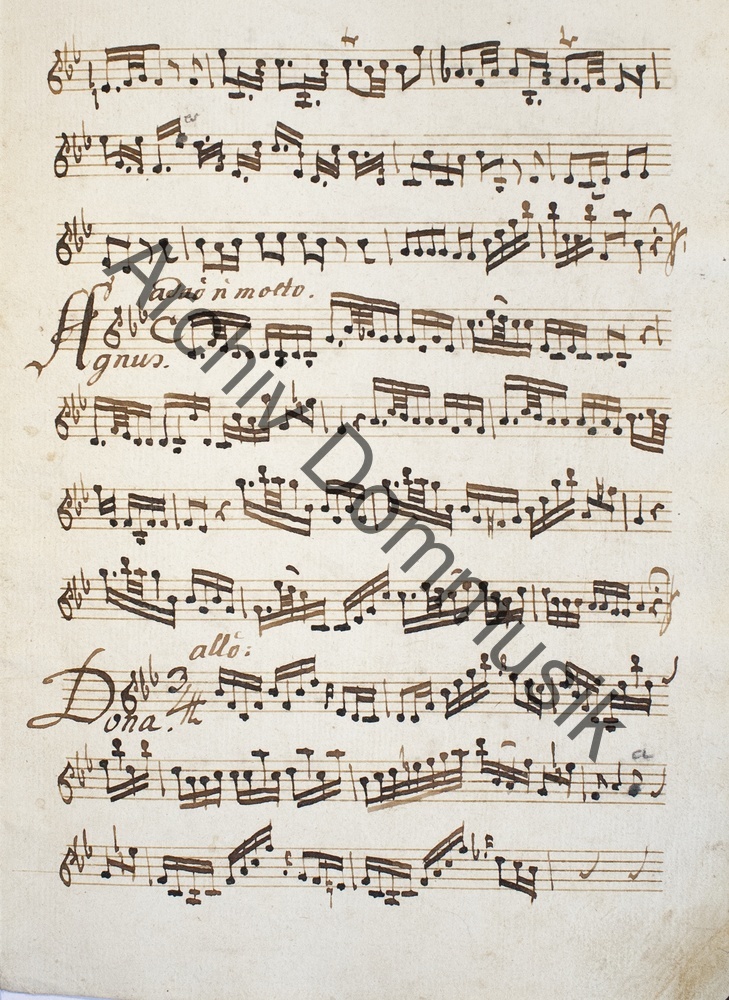 adaió ñ molto.
Agnus.
alló:
Dona. 3/4
Archiv Dommusik